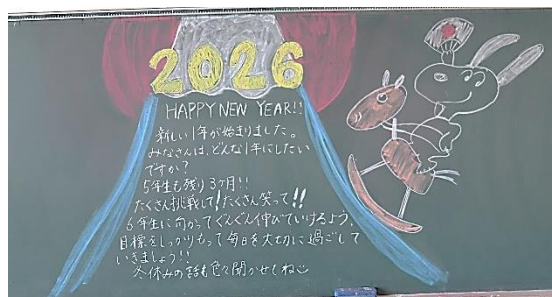 2026
HAPPY NEW YEAR!!
新しい1年が始まりました。
みなさんは、どんな1年にしたい
ですか?
5年生も残り3ヶ月!!
たくさん挑戦して!たくさん笑って!!
6年生に向かってぐんぐん伸びていけるよう、
目標をしっかりもって毎日を大切に過ごして
いきましょう!!
冬休みの話も色々聞かせてね